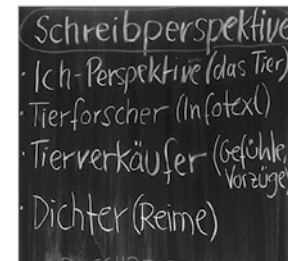 Schreibperspektive
· Ich-Perspektive (das Tier)
· Tierforscher (Infotext)
· Tierverkäufer (Gefühle,
Vorzüge)
· Dichter (Reime)